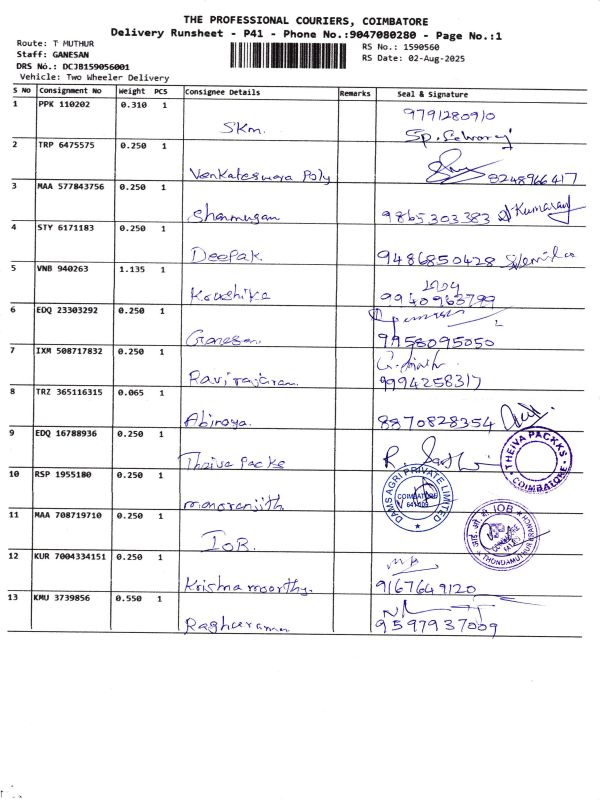 THE PROFESSIONAL COURIERS, COIMBATORE
Delivery Runsheet - P41 - Phone No.:9047080280 - Page No.:1
Route: T MUTHUR
Staff: GANESAN
DRS No.: DCJB159056001
Vehicle: Two Wheeler Delivery
RS No.: 1590560
RS Date: 02-Aug-2025
S No Consignment No Weight PCS Consignee Details Remarks Seal & Signature
1 PPK 110202 0.310 1 9791280910
SKm.
2 TRP 6475575 0.250 1
Venkateswara Poly 8248966417
3 MAA 577843756 0.250 1
Shanmugan 9865303383 Kumaran
4 STY 6171183 0.250 1
Deepak. 9486850428
5 VNB 940263 1.135 1
Koushika 9940963799
6 EDQ 23303292 0.250 1
Ganesan. 9958095050
7 IXM 508717832 0.250 1
Ravirajaram. 9994258317
8 TRZ 365116315 0.065 1
Abinaya. 8870828354
9 EDQ 16788936 0.250 1
Theiva Packs
THEIVA PACKKS
COIMBATORE
10 RSP 1955180 0.250 1
manoranjith
DAMS AGRI PRIVATE LIMITED
COIMBATORE
11 MAA 708719710 0.250 1
IOB.
IOB
THONDAMUTHUR BRANCH
12 KUR 7004334151 0.250 1
Krishnamoorthy. 9167649120
13 KMU 3739856 0.550 1
Raghuraman 9597937009